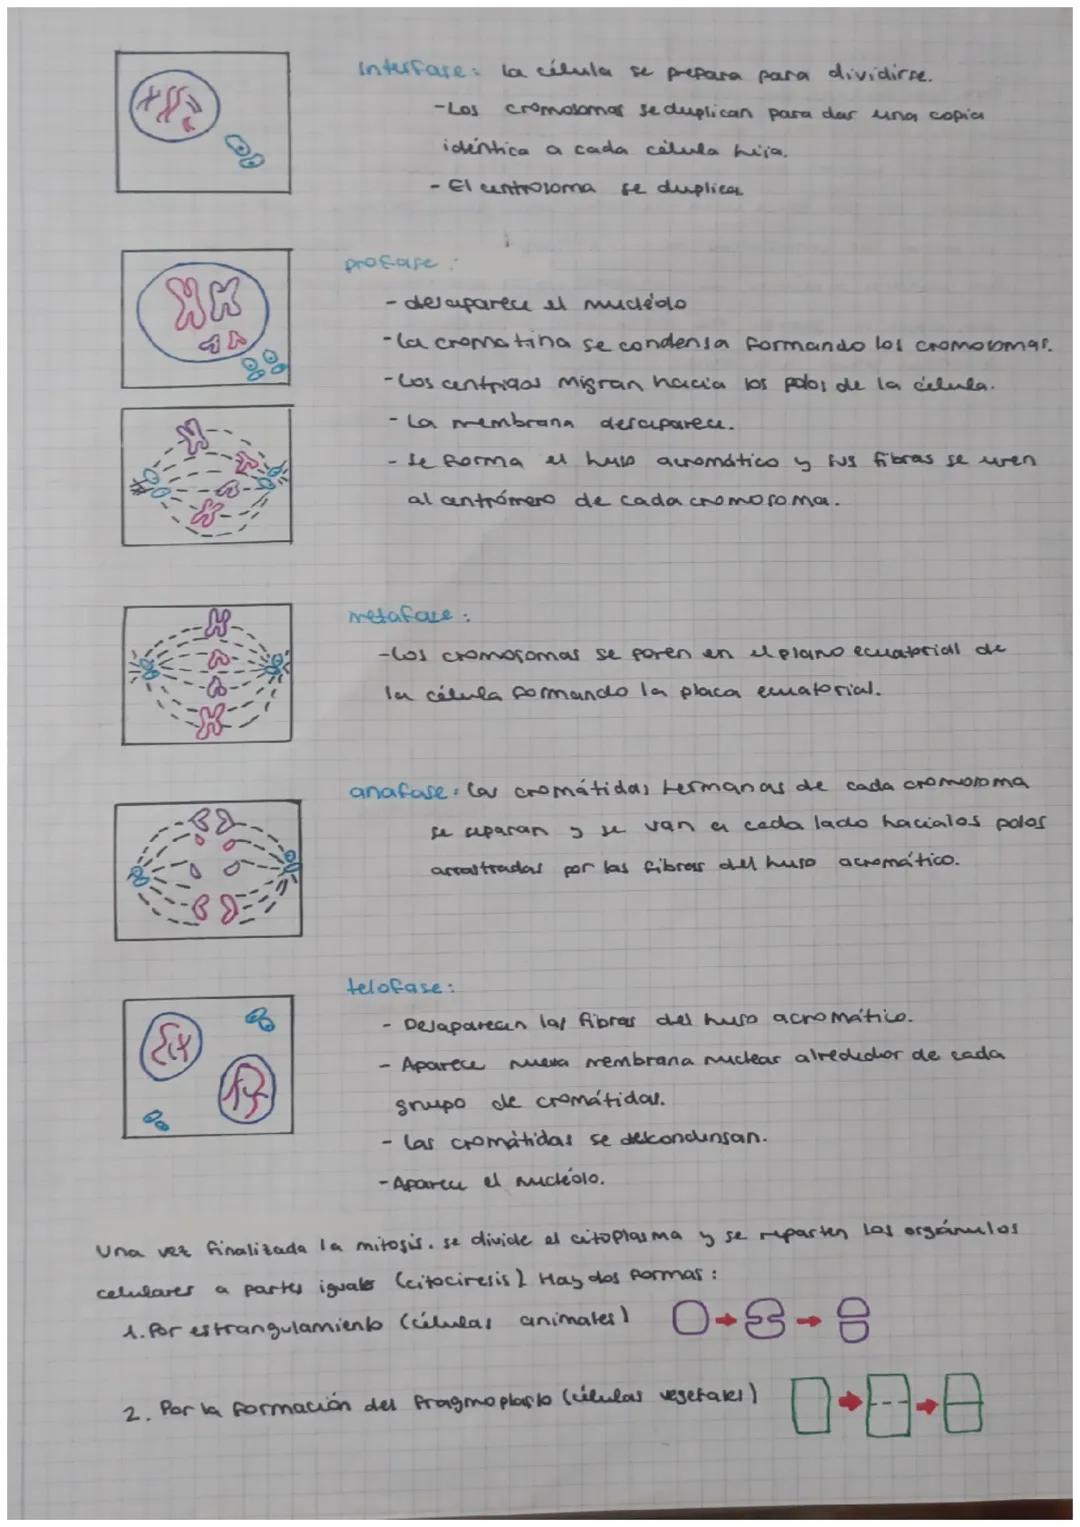 interfase: la célula se prepara para dividirse.
-Los cromosomas se duplican para dar una copia
idéntica a cada célula hija.
- El centrosoma se duplica
profase:
- desaparece el nucléolo
-la cromatina se condensa formando los cromosomas.
-Los centriolos migran hacia los polos de la célula.
- La membrana desaparece.
- Se forma el huso acromático y sus fibras se unen
al centrómero de cada cromosoma.
metafase:
-Los cromosomas se ponen en el plano ecuatorial de
la célula formando la placa ecuatorial.
anafase: las cromátidas hermanas de cada cromosoma
se separan y se van a cada lado hacia los polos
arrastradas por las fibras del huso acromático.
telofase:
- Desaparecen las fibras del huso acromático.
- Aparece nueva membrana nuclear alrededor de cada
grupo de cromátidas.
- las cromátidas se descondensan.
-Aparece el nucléolo.
Una vez finalizada la mitosis. se divide el citoplasma y se reparten los orgánulos
celulares a partes iguales (citocinesis) Hay dos formas:
1. Por estrangulamiento (células animales)
2. Por la formación del fragmoplasto (células vegetales)